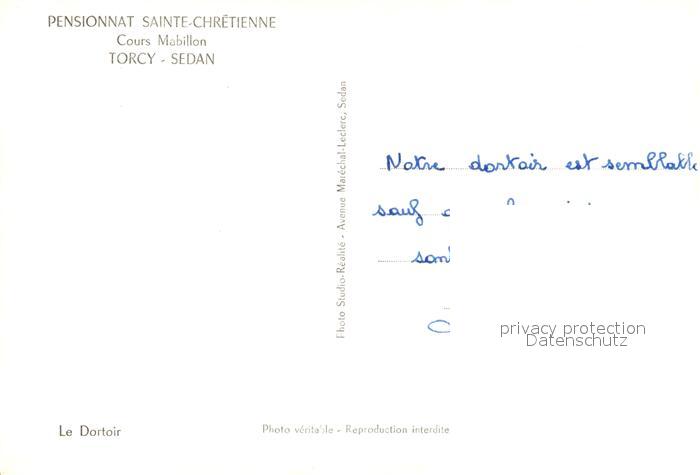 PENSIONNAT SAINTE-CHRÉTIENNE
Cours Mabillon
TORCY - SEDAN
Photo Studio-Réalité - Avenue Maréchal-Leclerc, Sedan
Notre dortoir est semblable
sauf
sont
privacy protection
Datenschutz
Le Dortoir
Photo véritable - Reproduction interdite